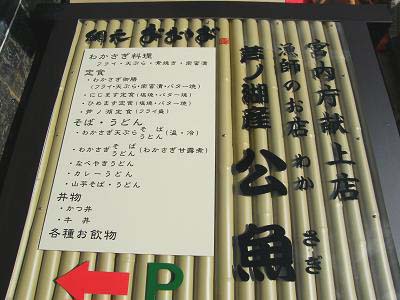 宮内庁献上店
漁師のお店
わかさぎ
芦ノ湖産 公魚
網元 おおば
わかさぎ料理
フライ・天ぷら・素焼き・南蛮漬
定食
・わかさぎ御膳
(フライ・天ぷら・南蛮漬・バター焼)
・にじます定食(塩焼・バター焼)
・ひめます定食(塩焼・バター焼)
・芦ノ湖定食(フライ盛)
そば・うどん
・わかさぎ天ぷら そば うどん (温・冷)
・わかさぎ そば うどん (わかさぎ甘露煮)
・なべやきうどん
・カレーうどん
・山芋そば・うどん
丼物
・かつ丼
・牛丼
各種お飲物
P